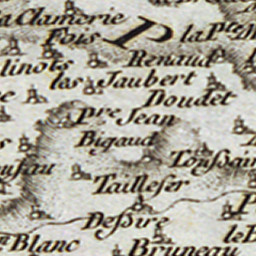 la Clamerie
Fois
P
la Pte
Renaud
linots
les Jaubert
Doudet
pre Jean
Bigaud
Toussain
Taillefer
Dessire
le B
Blanc
Bruneau